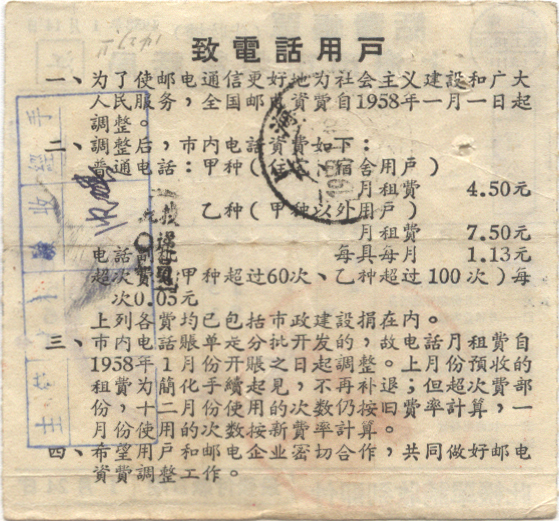 致電話用戶
一、为了使邮电通信更好地为社会主义建設和广大
人民服务，全国邮电資費自1958年一月一日起
調整。
二、調整后，市内电話資費如下：
普通电話：甲种（住宅、宿舍用戶）
月租費 4.50元
乙种（甲种以外用戶）
月租費 7.50元
电話副
每具每月 1.13元
超次費（甲种超过60次、乙种超过100次）每
次0.05元
上列各費均已包括市政建設的捐在内。
三、市内电話賬单分批开发，故电話月租費自
1958年1月份开賬之日起調整。上月份預收的
租費，為簡化手續起見，不再补退；但超次費的部
份，十二月份使用的次数仍按旧費率計算，一
月份使用次数按新費率計算。
四、希望用戶和邮电企业密切合作，共同做好邮电
資費調整工作。
驗收經手